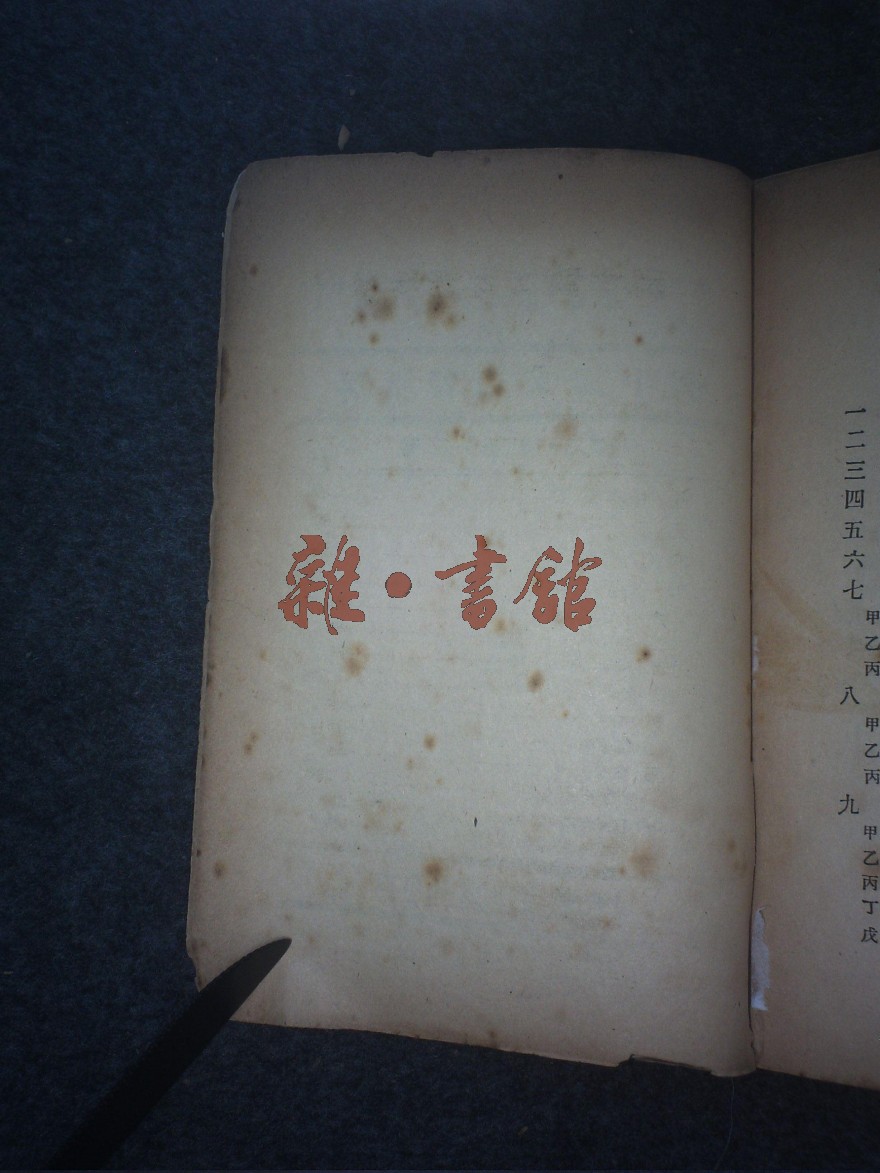 雜•書館
一
二
三
四
五
六
七
甲
乙
丙
八
甲
乙
丙
九
甲
乙
丙
丁
戊